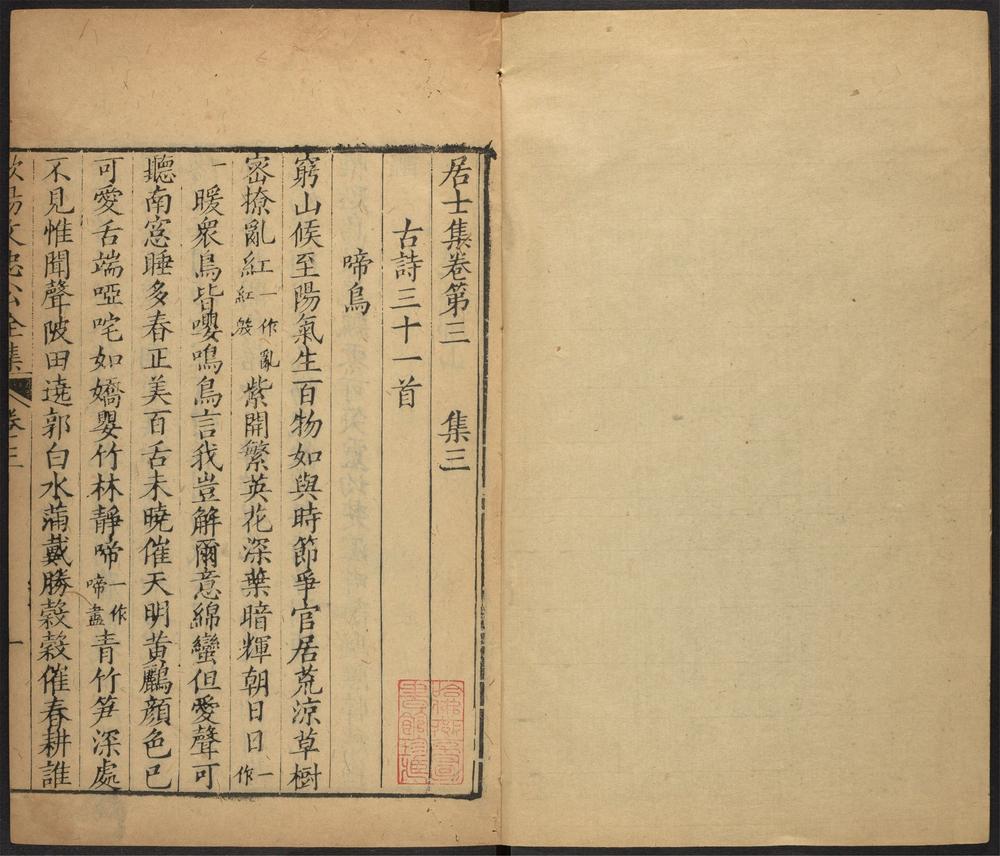 居士集卷第三　集三
古詩三十一首
啼鳥
窮山候至陽氣生百物如與時節爭官居荒涼草樹
密撩亂紅一作亂紅紫開繁英花深葉暗輝朝日日一作
一暖衆鳥皆嚶鳴鳥言我豈解爾意綿蠻但愛聲可
聽南窻睡多春正美百舌未曉催天明黃鸝顔色已
可愛舌端啞咤如嬌嬰竹林靜啼一作啼盡青竹笋深處
不見惟聞聲陂田遶郭白水滿戴勝穀穀催春耕誰
歐陽文忠公全集　卷三　一